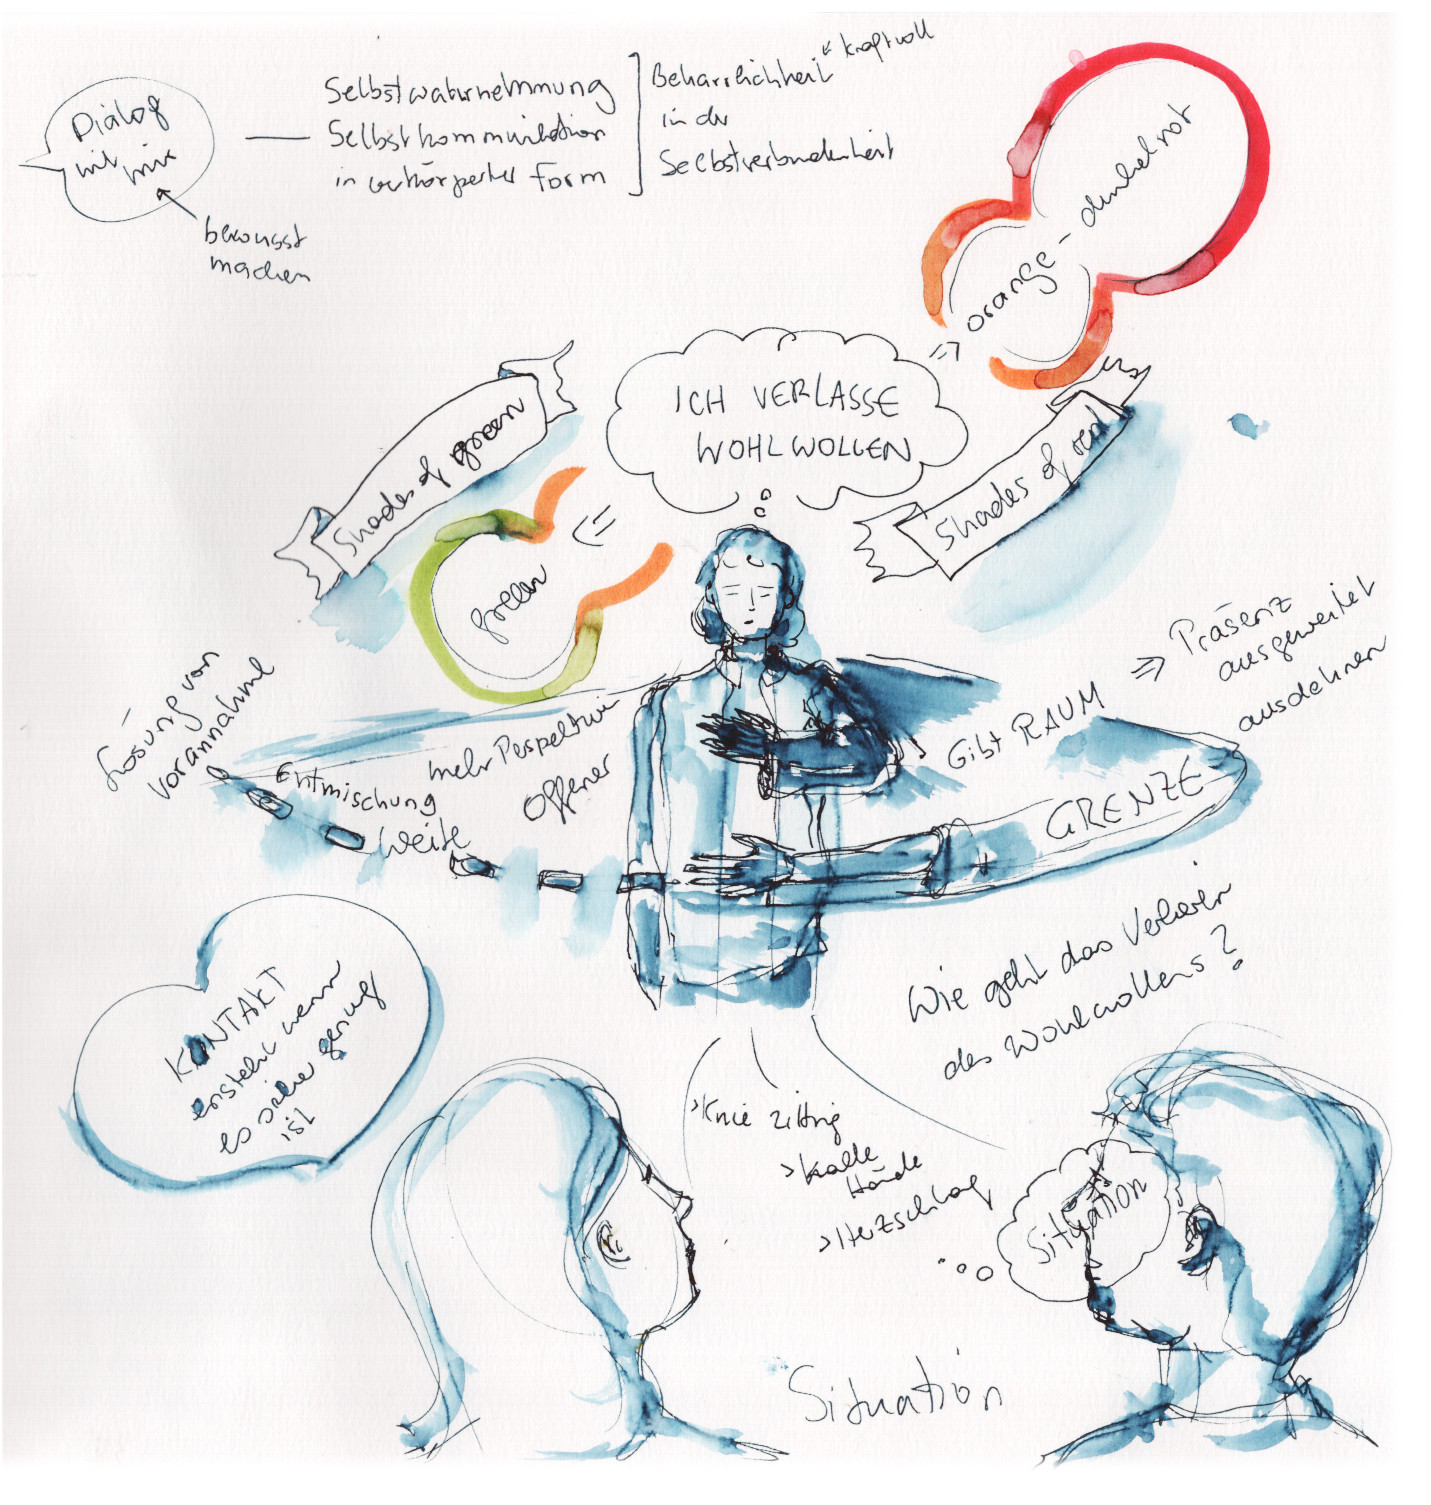 Dialog
mit
mir
bewusst
machen
Selbstwahrnehmung
Selbstkommunikation
in verkörperter Form
Beharrlichkeit
in der
Selbstverbundenheit
kraftvoll
orange - dunkelrot
Shades of green
ICH VERLASSE
WOHLWOLLEN
Shades of red
green
Lösung von
Vorannahme
Entmischung
Weite
mehr Perspektive
Offener
Gibt RAUM
Präsenz
ausgeweitet
ausdehnen
GRENZE
KONTAKT
ensteht wenn
es sicher genug
ist
Wie geht das Verlieren
des Wohlwollens?
>Knie zittrig
>kalte
Hände
>Herzschlag
Situation
Situation